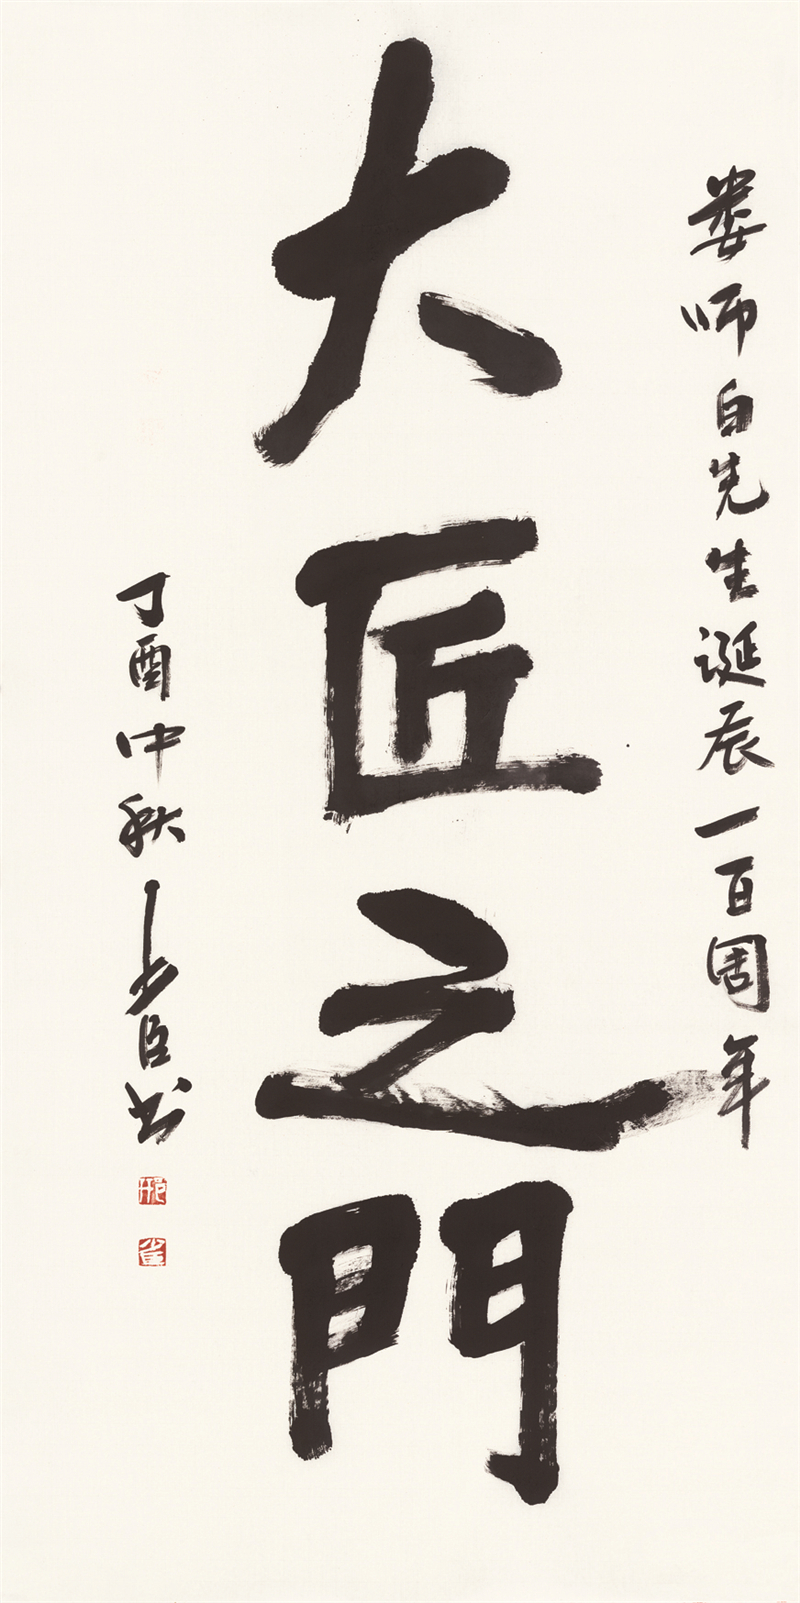 娄师白先生诞辰一百周年
大匠之門
丁酉中秋少臣书